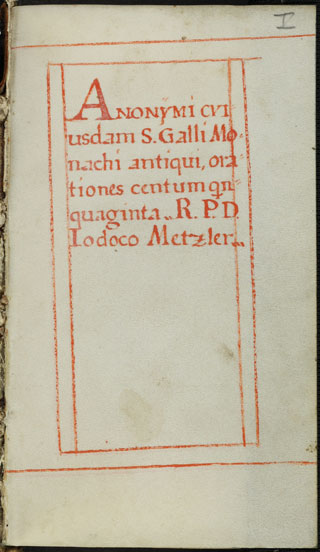 I
ANONYMI CVI
usdam S. Galli Mo-
nachi antiqui, ora
tiones centum qn
quaginta. R. P. D.
Iodoco Metzler.